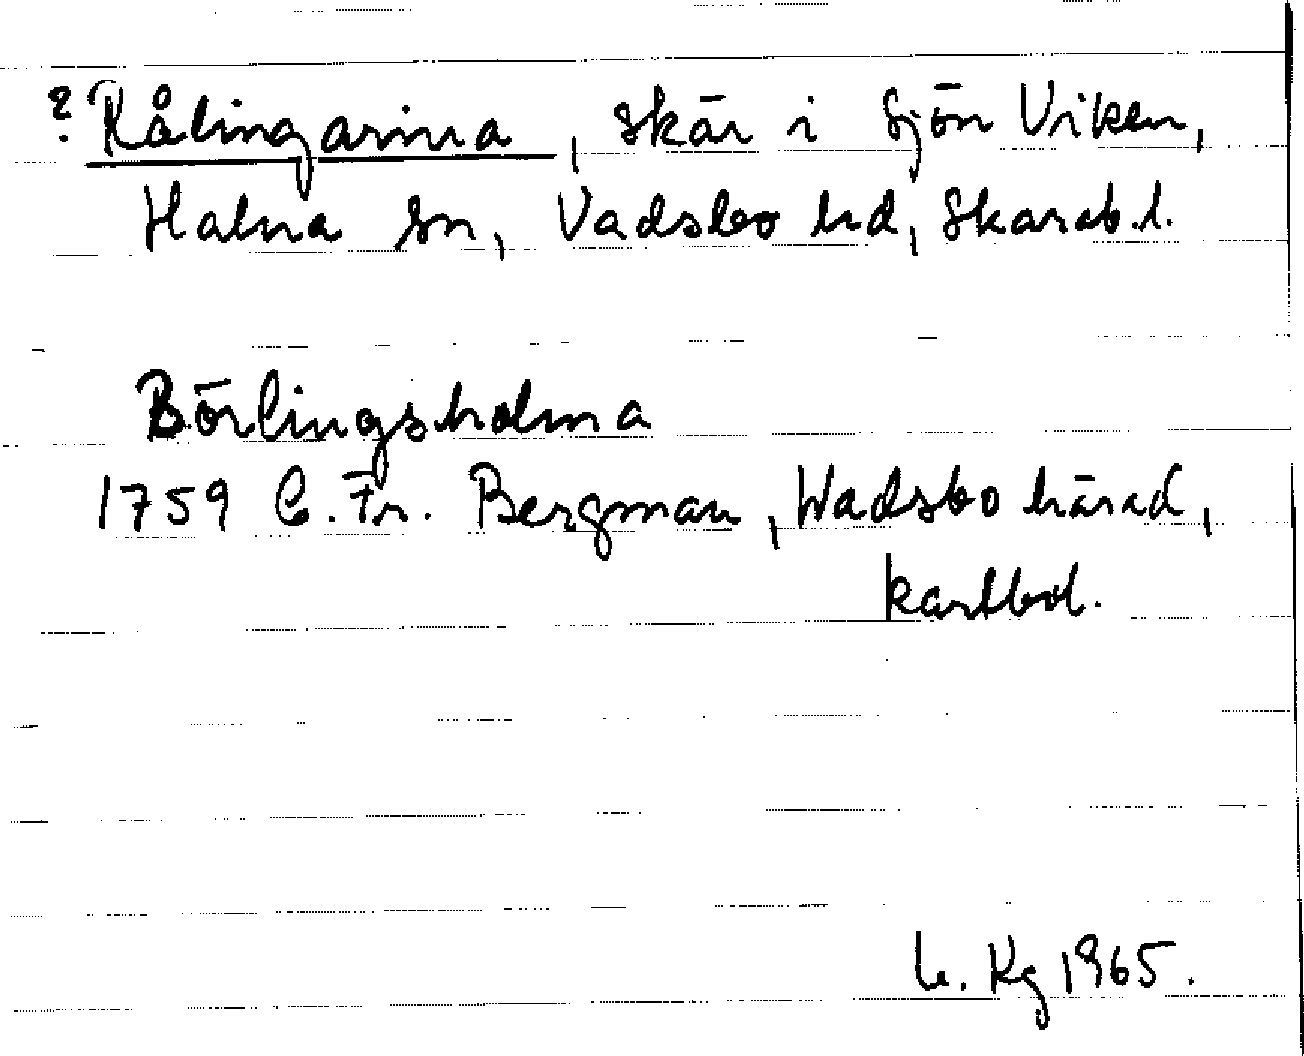 ? Rålingarna, skär i sjön Viken,
Halna sn, Vadsbo hd, Skarab. l.
Börlingsholma
1759 C. Fr. Bergman, Wadsbo härad,
kartbd.
Kg 1965.